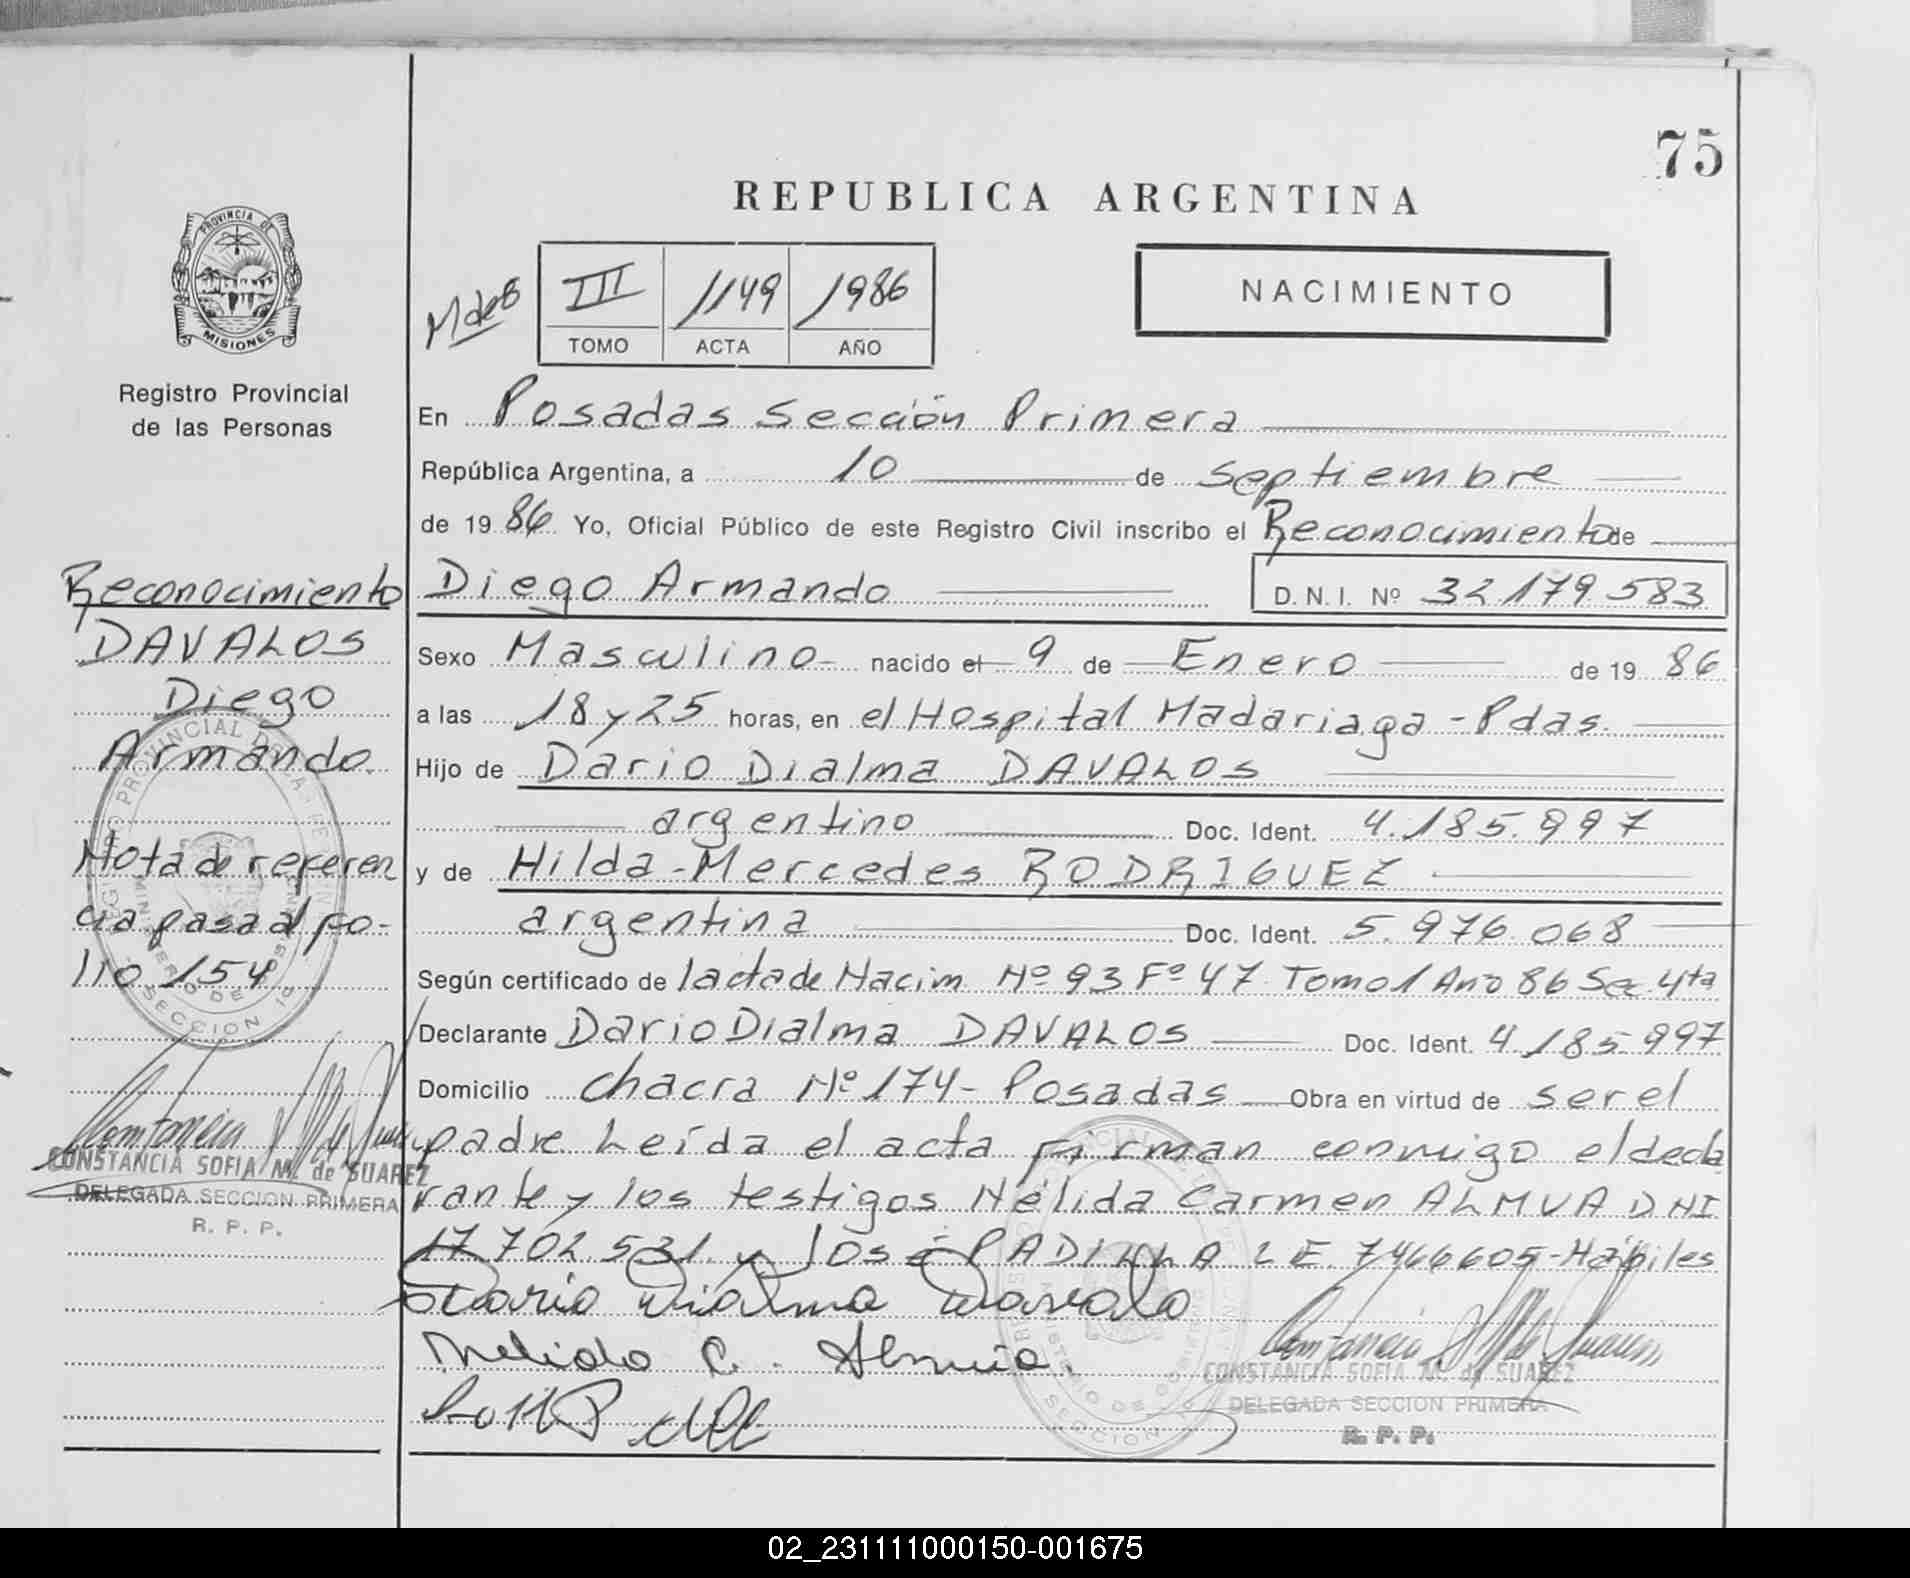 75
REPUBLICA ARGENTINA
PROVINCIA DE
MISIONES
Registro Provincial
de las Personas
MdeB
III 1149 1986
TOMO ACTA AÑO
NACIMIENTO
En Posadas Sección Primera
República Argentina, a 10 de septiembre
de 1986 Yo, Oficial Público de este Registro Civil inscribo el Reconocimiento de
Diego Armando D. N. I. Nº 32179.583
Sexo Masculino nacido el 9 de Enero de 1986
a las 18 y 25 horas, en el Hospital Madariaga - Pdas.
Hijo de Dario Dialma DAVALOS
argentino Doc. Ident. 4.185.997
y de Hilda - Mercedes RODRIGUEZ
argentina Doc. Ident. 5.976.068
Según certificado de lactade Nacim Nº 93 Fº 47 Tomo 1 Año 86 Sec 4ta
Declarante Dario Dialma DAVALOS Doc. Ident. 4.185.997
Domicilio chacra Nº 174 - Posadas Obra en virtud de ser el
padre Leída el acta firman conmigo el decla
rante y los testigos Nélida Carmen ALMUA DNI
17.702.531. y José PADILLA L E. 7466605 - Hábiles
Dario Dialma Davalo
Nelida C. Almua.
CONSTANCIA SOFIA M. de SUAREZ
DELEGADA SECCION PRIMERA
R. P. P.
Reconocimiento
DAVALOS
Diego
Armando.
Nota de referen
cia pasa al fo-
lio 154
CONSTANCIA SOFIA M. de SUAREZ
DELEGADA SECCION PRIMERA
R. P. P.
02_231111000150-001675